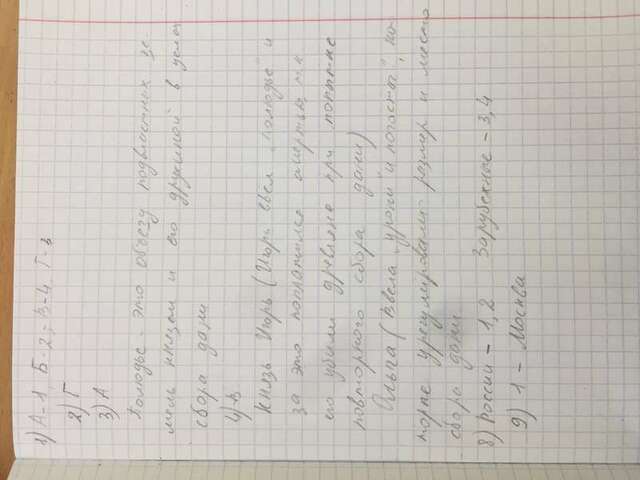 1) А-1, Б-2; В-4 Г-3
2) Г
3) А
Полюдье - это объезд подвластных зе
мель князем и его дружиной в целях
сбора дани
4) В
Князь Игорь (Игорь ввел "полюдье" и
за это поплатился смертью т.к
его убили древляне при попытке
повторного сбора дани)
Ольга (Ввела "уроки и погосты", ко-
торые урегулировали размер и место
сбора дани
8) России - 1,2 Зарубежные - 3,4
9) 1 - Москва